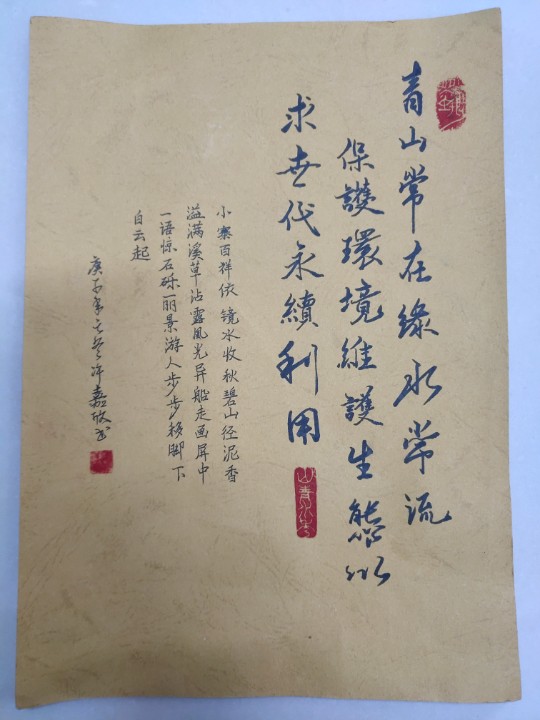 青山常在綠水常流
保護環境維護生態以
求世代永續利用
小寨百群依镜水收秋碧山径泥香
溢满溪草沾露風光异船走画屏中
一语惊石砾丽景游人步步移脚下
白云起
庚子年 許嘉 书
山青水秀